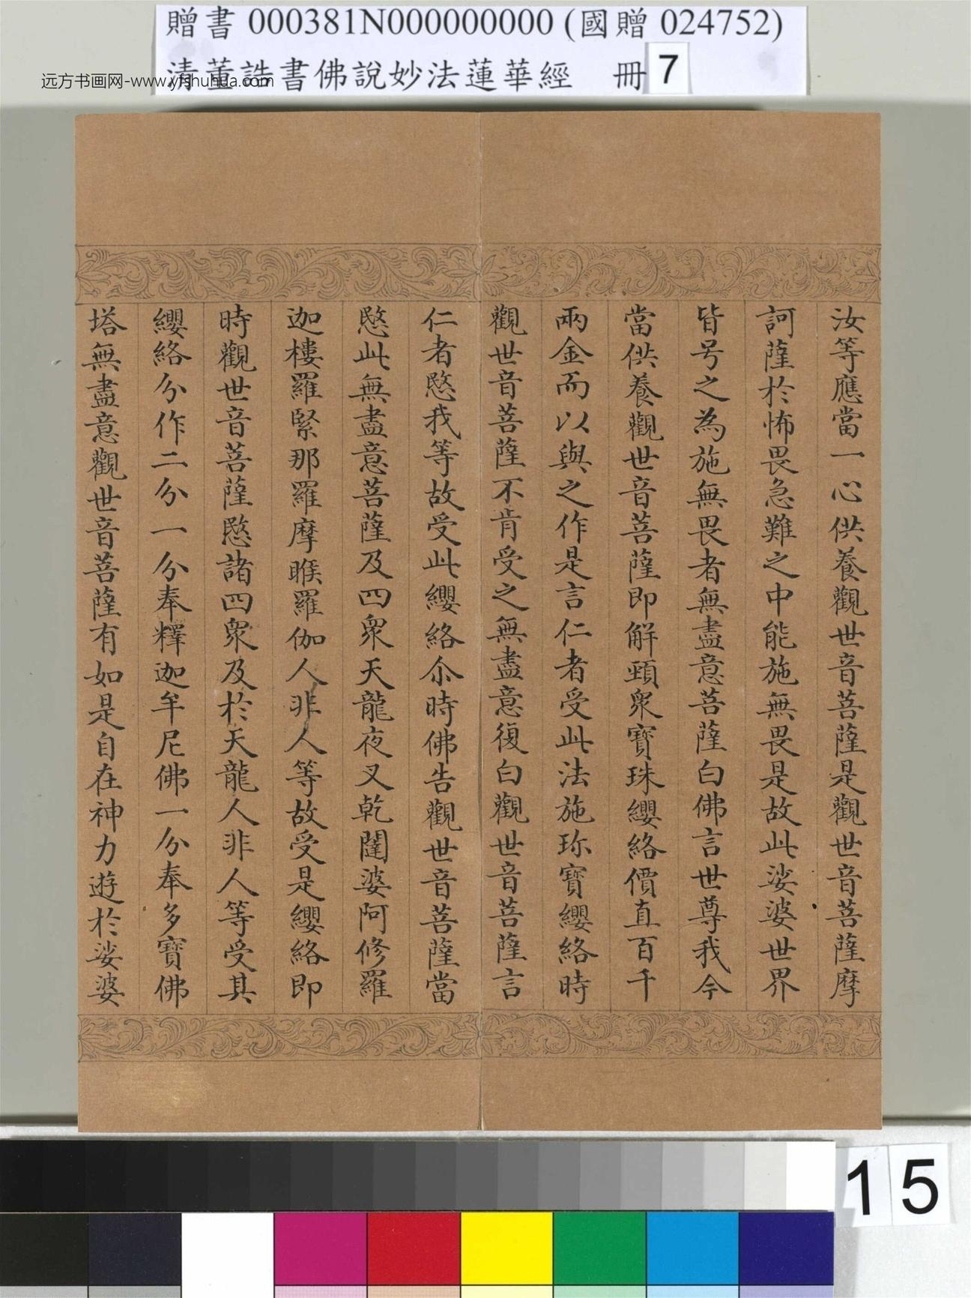 贈書 000381N000000000 (國贈 024752)
清董誥書佛說妙法蓮華經 冊 7
远方书画网-www.yfshuhua.com
汝等應當一心供養觀世音菩薩是觀世音菩薩摩
訶薩於怖畏急難之中能施無畏是故此娑婆世界
皆号之為施無畏者無盡意菩薩白佛言世尊我今
當供養觀世音菩薩即解頸眾寶珠纓絡價直百千
兩金而以與之作是言仁者受此法施珎寶纓絡時
觀世音菩薩不肯受之無盡意復白觀世音菩薩言
仁者愍我等故受此纓絡尒時佛告觀世音菩薩當
愍此無盡意菩薩及四眾天龍夜叉乾闥婆阿修羅
迦樓羅緊那羅摩睺羅伽人非人等故受是纓絡即
時觀世音菩薩愍諸四眾及於天龍人非人等受其
纓絡分作二分一分奉釋迦牟尼佛一分奉多寶佛
塔無盡意觀世音菩薩有如是自在神力遊於娑婆
15